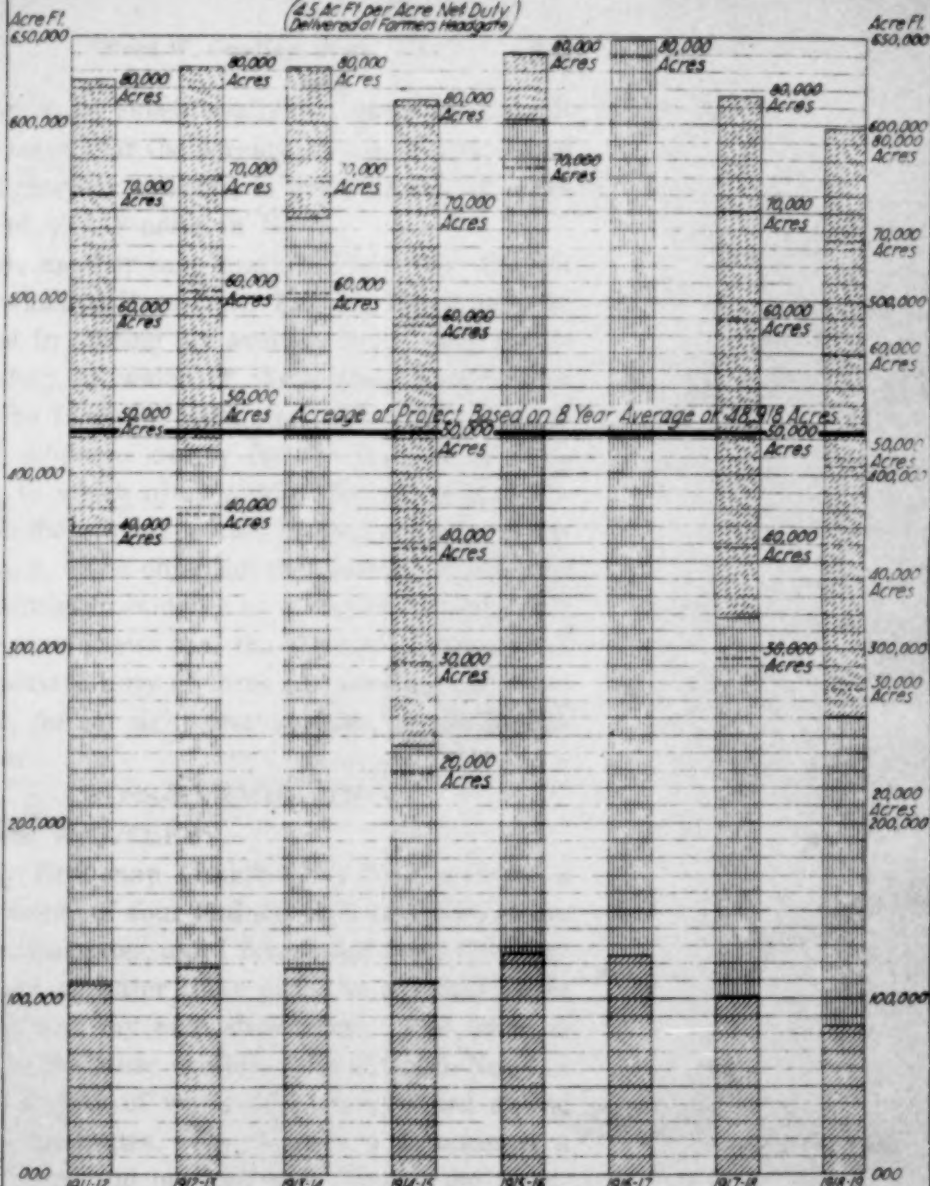 (4.5 Ac Ft per Acre Net Duty
Delivered at Farmers Headgate)
Acre Ft.
650,000
600,000
500,000
400,000
300,000
200,000
100,000
000
80,000
Acres
70,000
Acres
60,000
Acres
50,000
Acres
40,000
Acres
80,000
Acres
70,000
Acres
60,000
Acres
50,000
Acres
40,000
Acres
80,000
Acres
70,000
Acres
60,000
Acres
80,000
Acres
70,000
Acres
60,000
Acres
50,000
Acres
40,000
Acres
30,000
Acres
20,000
Acres
80,000
Acres
70,000
Acres
80,000
Acres
80,000
Acres
70,000
Acres
60,000
Acres
50,000
Acres
40,000
Acres
30,000
Acres
Acreage of Project Based on 8 Year Average of 48,918 Acres
Acre Ft.
650,000
600,000
80,000
Acres
70,000
Acres
500,000
60,000
Acres
50,000
Acres
400,000
40,000
Acres
300,000
30,000
Acres
20,000
Acres
200,000
100,000
000
1911-12 1912-13 1913-14 1914-15 1915-16 1916-17 1917-18 1918-19